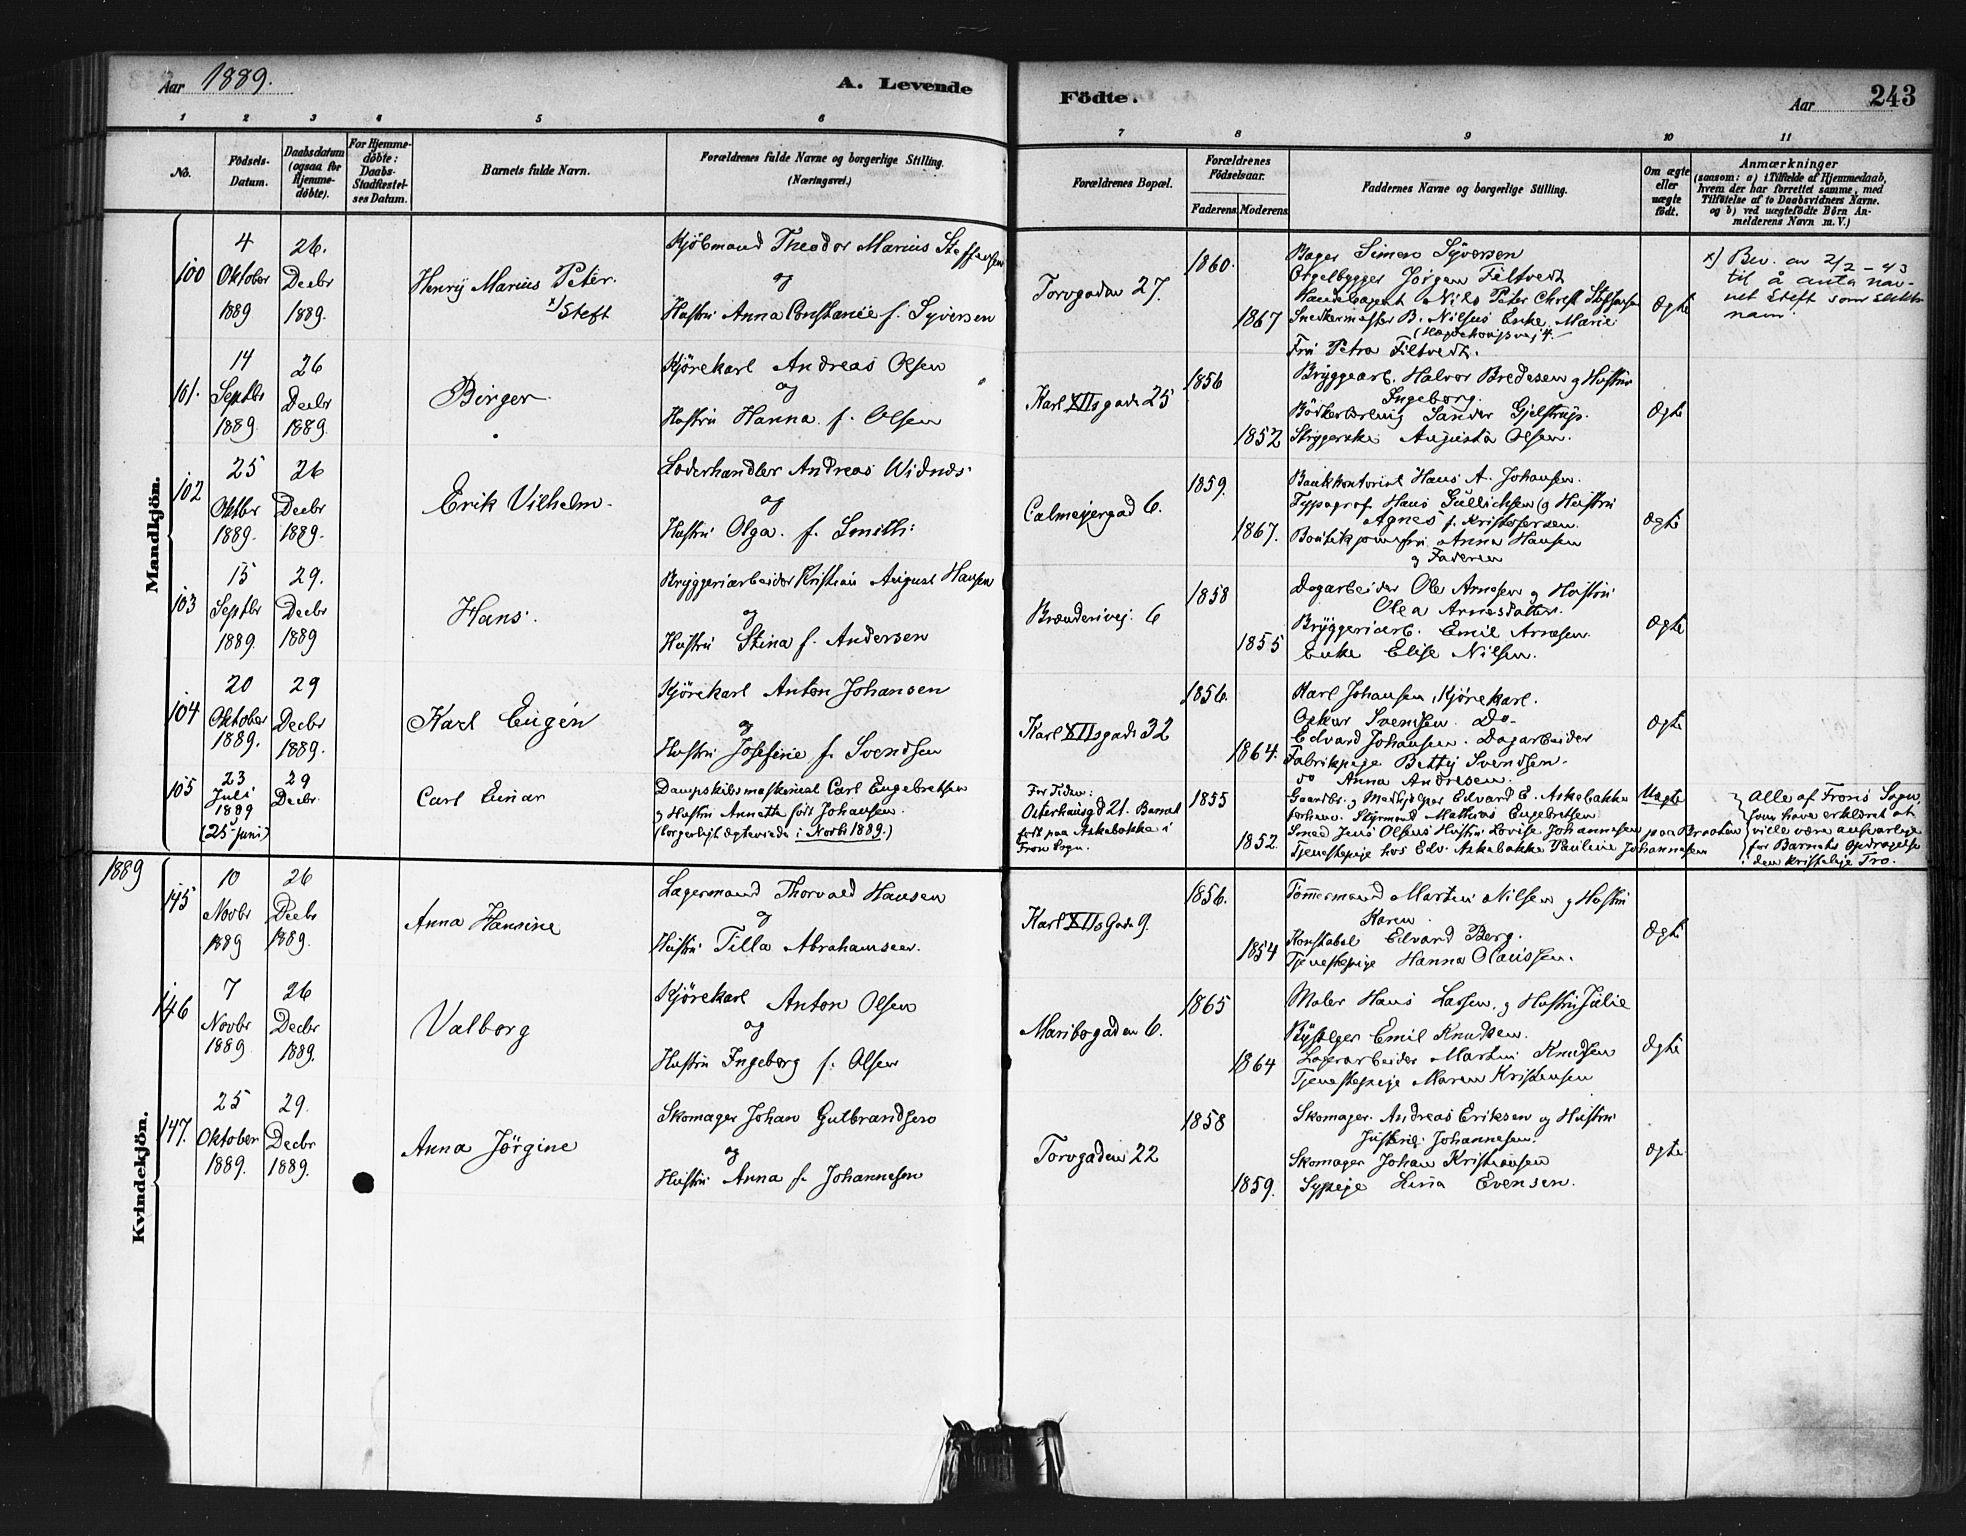 Aar 1889.
A. Levende
Födte.
Aar
243
1 2 3 4 5 6 7 8 9 10 11
No.
Födsels-
Datum.
Daabsdatum
(ogsaa for
Hjemme-
döbte).
For Hjemme-
döbte:
Daabs-
Stadfæstel-
ses Datum.
Barnets fulde Navn.
Forældrenes fulde Navne og borgerlige Stilling.
(Næringsvei.)
Forældrenes Bopæl.
Forældrenes
Födselsaar.
Faderens.
Moderens.
Faddernes Navne og borgerlige Stilling.
Om ægte
eller
uægte
födt.
Anmærkninger
(saasom: a) i Tilfælde af Hjemmedaab,
hvem der har forrettet samme, med
Tilföielse af to Daabsvidners Navne.
og b) ved uægtefödte Börn An-
melderens Navn m. V.)
Mandkjön.
100
4
Oktober
1889
26.
Decbr
1889.
Henry Marius Peter.
x) Steft
Kjöbmand Theodor Marius Steffensen
og
Hustru Anna Constance f. Syversen
Torvgaden 27.
1860.
1867
Bager Simen Syversen
Orgelbygger Jörgen Filtvedt
Handelsagent Nils Peter Christ. Steffensen
Snedkermester B. Nilsens Enke Marie
Fru Petra Filtvedt.
Ægte
x) Bev. av 2/2-43
til å anta nav-
net Steft som slekts-
navn.
101.
14
Septbr
1889
26
Decbr
1889.
Birger.
Kjörekarl Andreas Olsen
og
Hustru Hanna f. Olsen
Karl XIIs gade 25
1856
1852
Bryggearb. Halvor Bredesen og Hustru
Ingeborg.
Sander Gjelstrup.
Strygerske Augusta Olsen.
Ægte
102
25
Oktbr
1889.
26
Decbr
1889.
Erik Vilhelm.
Læderhandler Andreas Widnæs
og
Hustru Olga. f. Smith:
Calmeyergad 6.
1859.
1867.
Bankkontorist Hans A. Johansen.
Typograf Hans Gullichsen og Hustru
Agnes f. Kristofersen.
Boutikjomfru Anna Hansen
og Faderen
Ægte
103
15
Septbr
1889.
29.
Decbr
1889
Hans.
Bryggeriarbeider Kristian August Hansen
og
Hustru Stina f. Andersen
Brænderivej. 6
1858
1855
Dagarbeider Ole Arnesen og Hustru
Olea Arnesdatter.
Bryggeriarb. Emil Arnesen.
Enke Elise Nilsen.
Ægte
104
20
Oktober
1889.
29
Decbr
1889.
Karl Eugén
Kjörekarl Anton Johansen
og
Hustru Josefine f. Svendsen
Karl XIIs gade 32
1856.
1864.
Karl Johansen, Kjörekarl.
Oskar Svendsen. Do-
Edvard Johansen. Dagarbeider
Fabrikpige Betty Svendsen.
do Anna Andresen.
Ægte
105
23
Juli
1889
(25 juni)
29
Decbr.
Carl Einar
Dampskibsmaskinist Carl Engebretsen
og Hustru Annette født Johansen.
(borgerligt ægteviede i Novbr 1889.)
For Tiden:
Osterhausgd 21. Barnet
født paa Askebakke i
Fron Sogn.
1855
1852.
Gaardbr. og Medhjelper Edvard E. Askebakke
forhenv. Styrmand Mathias Engebretsen
Smed Jens Olsens Hustru Lovise Johannesen paa Braaten
Tjenestepige hos Edv. Askebakke Pauline Johannesen
Uægte
Alle af Frons Sogn,
som have erklæret at
ville være ansvarlige
for Barnets Opdragelse
i den kristelige Tro.
1889
Kvindekjön.
145
10
Novbr
1889
26
Decbr
1889.
Anna Hansine
Lagermand Thorvald Hansen
og
Hustru Tilla Abrahamsen.
Karl XIIs Gade 9.
1856.
1854
Tömmermand Martin Nilsen og Hustru
Karen.
Konstabel Edvard Berg.
Tjenestepige Hanna Olaussen.
Ægte
146
7
Novbr
1889
26
Decbr
1889.
Valborg
Kjörekarl Anton Olsen
og
Hustru Ingeborg f. Olsen
Maribogaden 6.
1865
1864
Maler Hans Larsen og Hustru Julie
Emil Knudsen.
Lagerarbeider Martin Knudsen
Tjenestepige Maren Kristensen
Ægte
147.
25
Oktober
1889.
29.
Decbr
1889.
Anna Jörgine
Skomager Johan Gulbrandsen
og
Hustru Anna f. Johannesen
Torvgaden 22
1858
1859.
Skomager. Andreas Eriksen og Hustru
Johannesen.
Skomager Johan Kristiansen
Sypige Lina Evensen.
Ægte